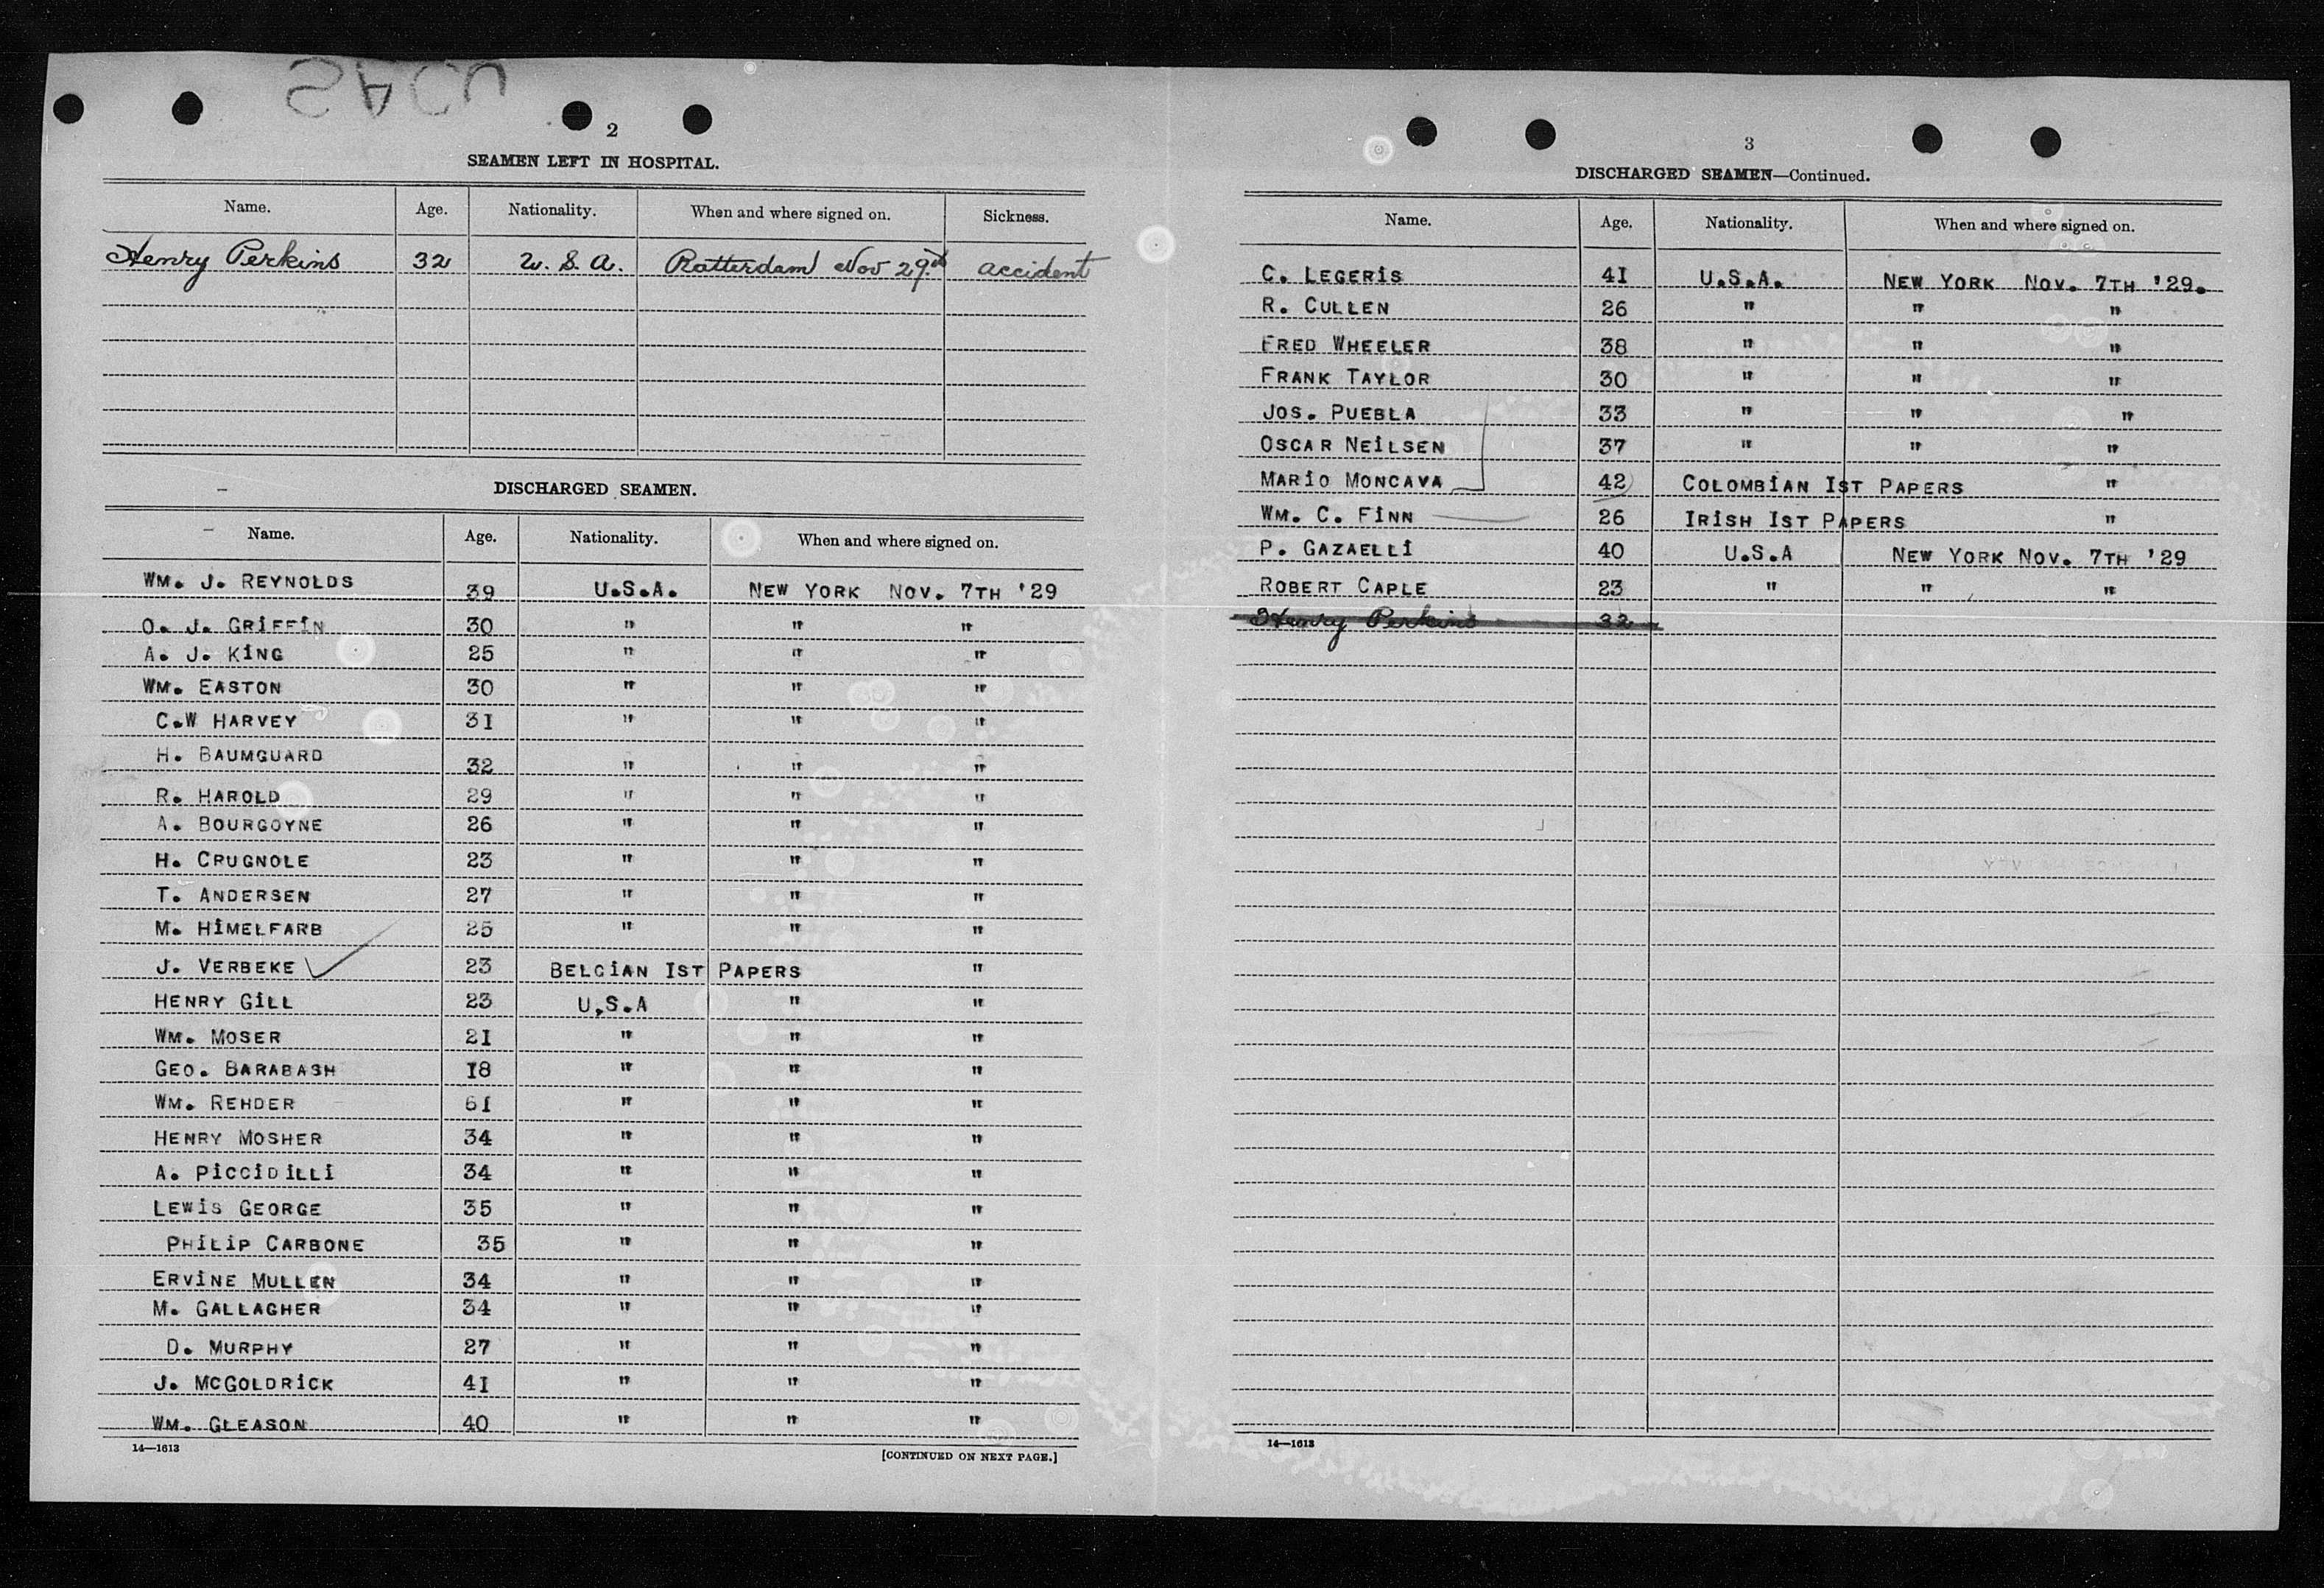 2
SEAMEN LEFT IN HOSPITAL.
Name. Age. Nationality. When and where signed on. Sickness.
Henry Perkins 32 U. S. A. Rotterdam Nov 29th accident
DISCHARGED SEAMEN.
Name. Age. Nationality. When and where signed on.
WM. J. REYNOLDS 39 U.S.A. NEW YORK NOV. 7TH '29
O. J. GRIFFIN 30 " " "
A. J. KING 25 " " "
WM. EASTON 30 " " "
C.W HARVEY 31 " " "
H. BAUMGUARD 32 " " "
R. HAROLD 29 " " "
A. BOURGOYNE 26 " " "
H. CRUGNOLE 23 " " "
T. ANDERSEN 27 " " "
M. HIMELFARB 25 " " "
J. VERBEKE 23 BELGIAN IST PAPERS "
HENRY GILL 23 U.S.A " "
WM. MOSER 21 " " "
GEO. BARABASH 18 " " "
WM. REHDER 61 " " "
HENRY MOSHER 34 " " "
A. PICCIDILLI 34 " " "
LEWIS GEORGE 35 " " "
PHILIP CARBONE 35 " " "
ERVINE MULLEN 34 " " "
M. GALLAGHER 34 " " "
D. MURPHY 27 " " "
J. MCGOLDRICK 41 " " "
WM. GLEASON 40 " " "
14—1613 [CONTINUED ON NEXT PAGE.]
3
DISCHARGED SEAMEN—Continued.
Name. Age. Nationality. When and where signed on.
C. LEGERIS 41 U.S.A. NEW YORK NOV. 7TH '29.
R. CULLEN 26 " " "
FRED WHEELER 38 " " "
FRANK TAYLOR 30 " " "
JOS. PUEBLA 33 " " "
OSCAR NEILSEN 37 " " "
MARIO MONCAVA 42 COLOMBIAN IST PAPERS "
WM. C. FINN 26 IRISH IST PAPERS "
P. GAZAELLI 40 U.S.A NEW YORK NOV. 7TH '29
ROBERT CAPLE 23 " " "
Henry Perkins 32
14—1613